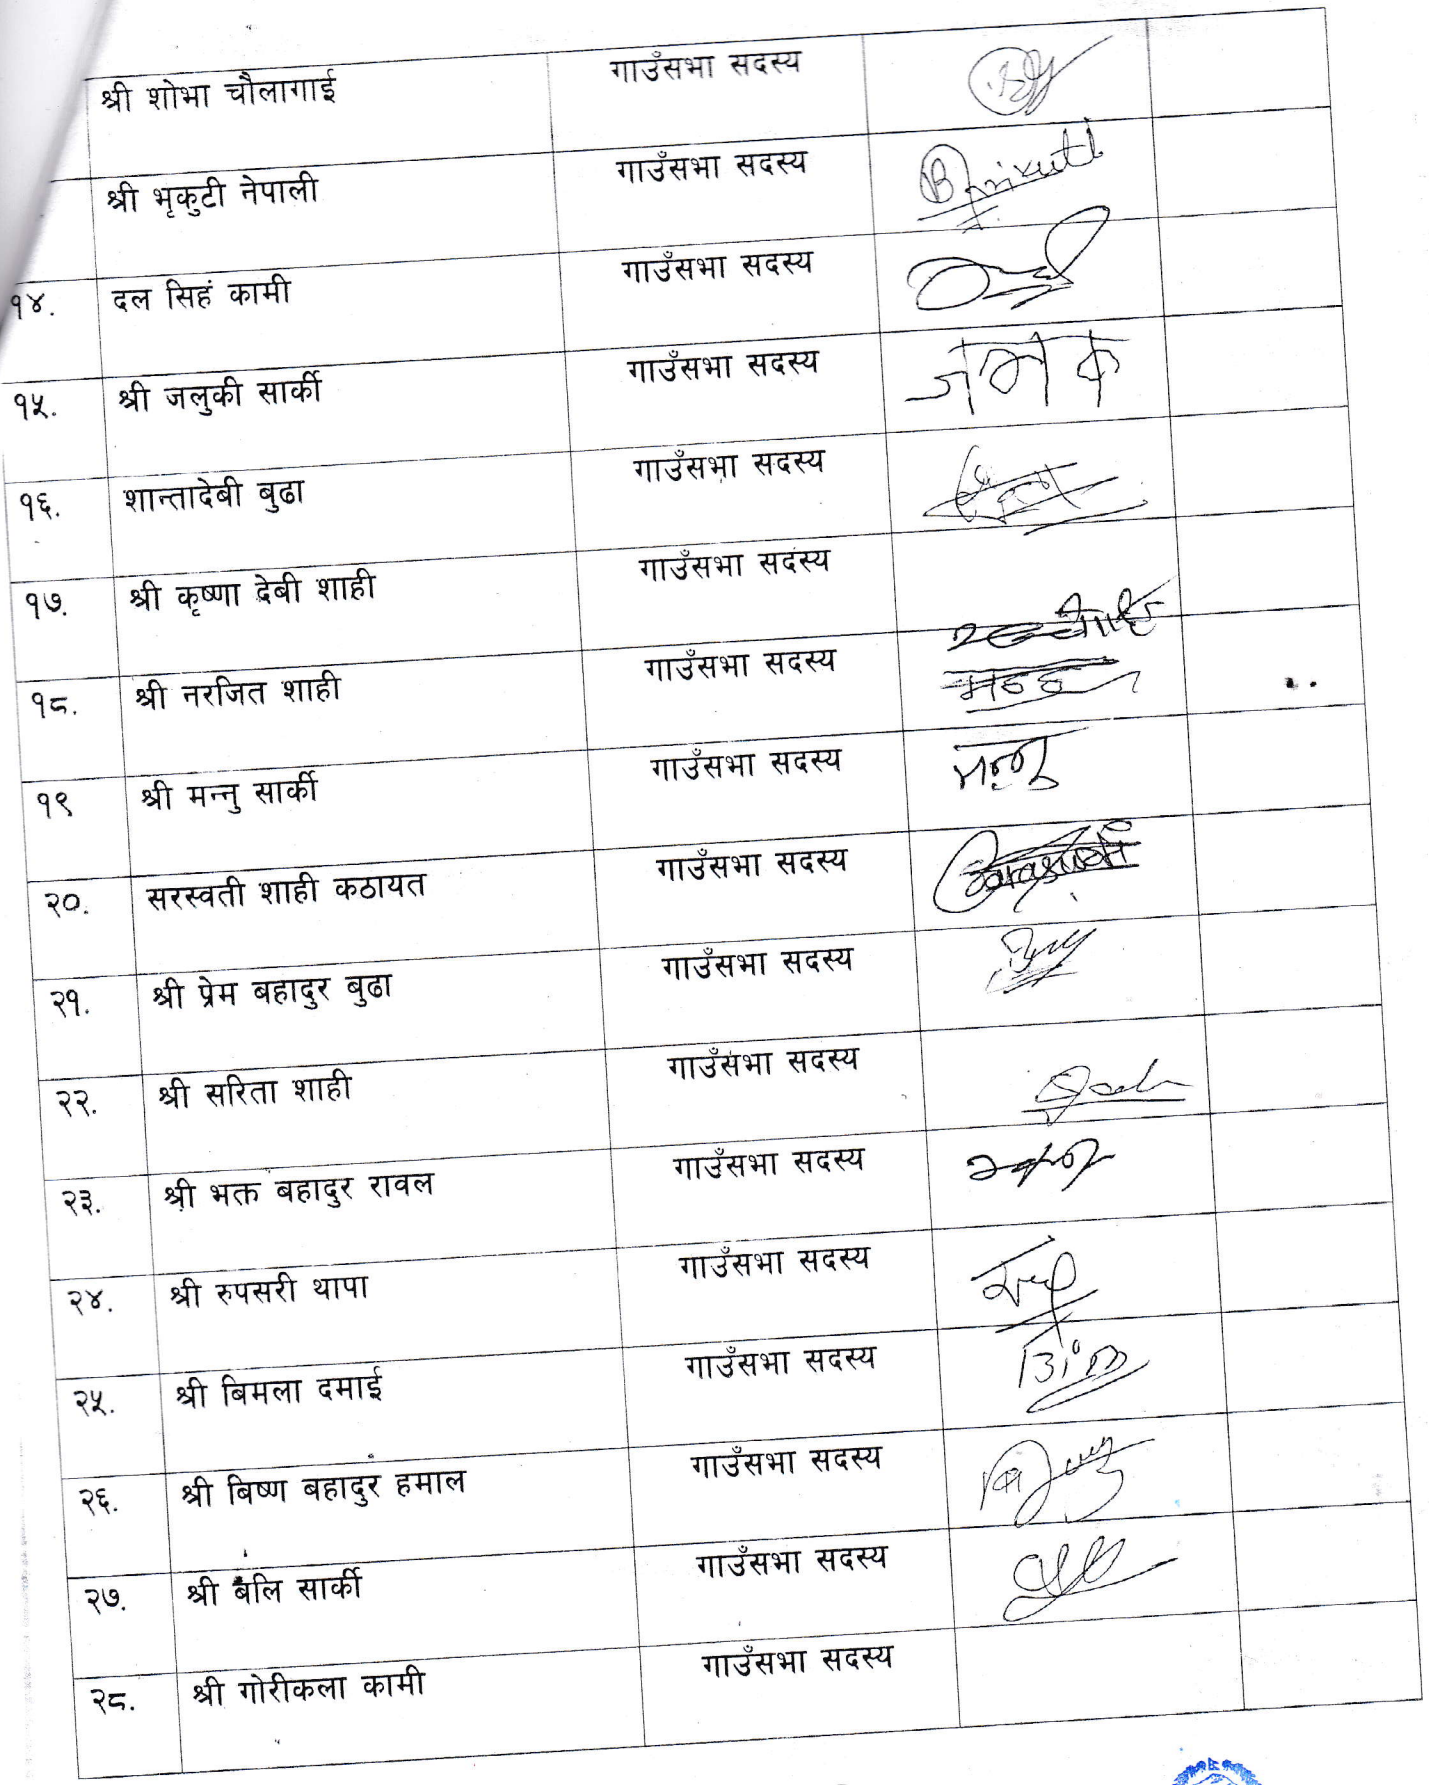 श्री शोभा चौलागाई गाउँसभा सदस्य
श्री भृकुटी नेपाली गाउँसभा सदस्य Bhrikuti
१४. दल सिहं कामी गाउँसभा सदस्य
१५. श्री जलुकी सार्की गाउँसभा सदस्य
१६. शान्तादेबी बुढा गाउँसभा सदस्य
१७. श्री कृष्णा देबी शाही गाउँसभा सदस्य
१८. श्री नरजित शाही गाउँसभा सदस्य
१९ श्री मन्नु सार्की गाउँसभा सदस्य मन्नु
२०. सरस्वती शाही कठायत गाउँसभा सदस्य
२१. श्री प्रेम बहादुर बुढा गाउँसभा सदस्य
२२. श्री सरिता शाही गाउँसभा सदस्य
२३. श्री भक्त बहादुर रावल गाउँसभा सदस्य
२४. श्री रुपसरी थापा गाउँसभा सदस्य
२५. श्री बिमला दमाई गाउँसभा सदस्य
२६. श्री बिष्ण बहादुर हमाल गाउँसभा सदस्य
२७. श्री बलि सार्की गाउँसभा सदस्य
२८. श्री गोरीकला कामी गाउँसभा सदस्य